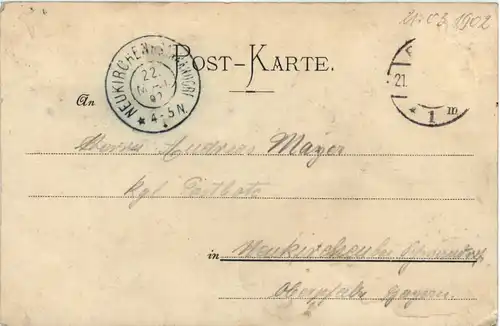 21.03.1902
POST-KARTE.
NEUKIRCHEN
22.
4-5 N.
21.
1 m
An
Herrn Andreas Mayer
kgl Postbote
in Neukirchen bei
Oberpfalz Bayern.